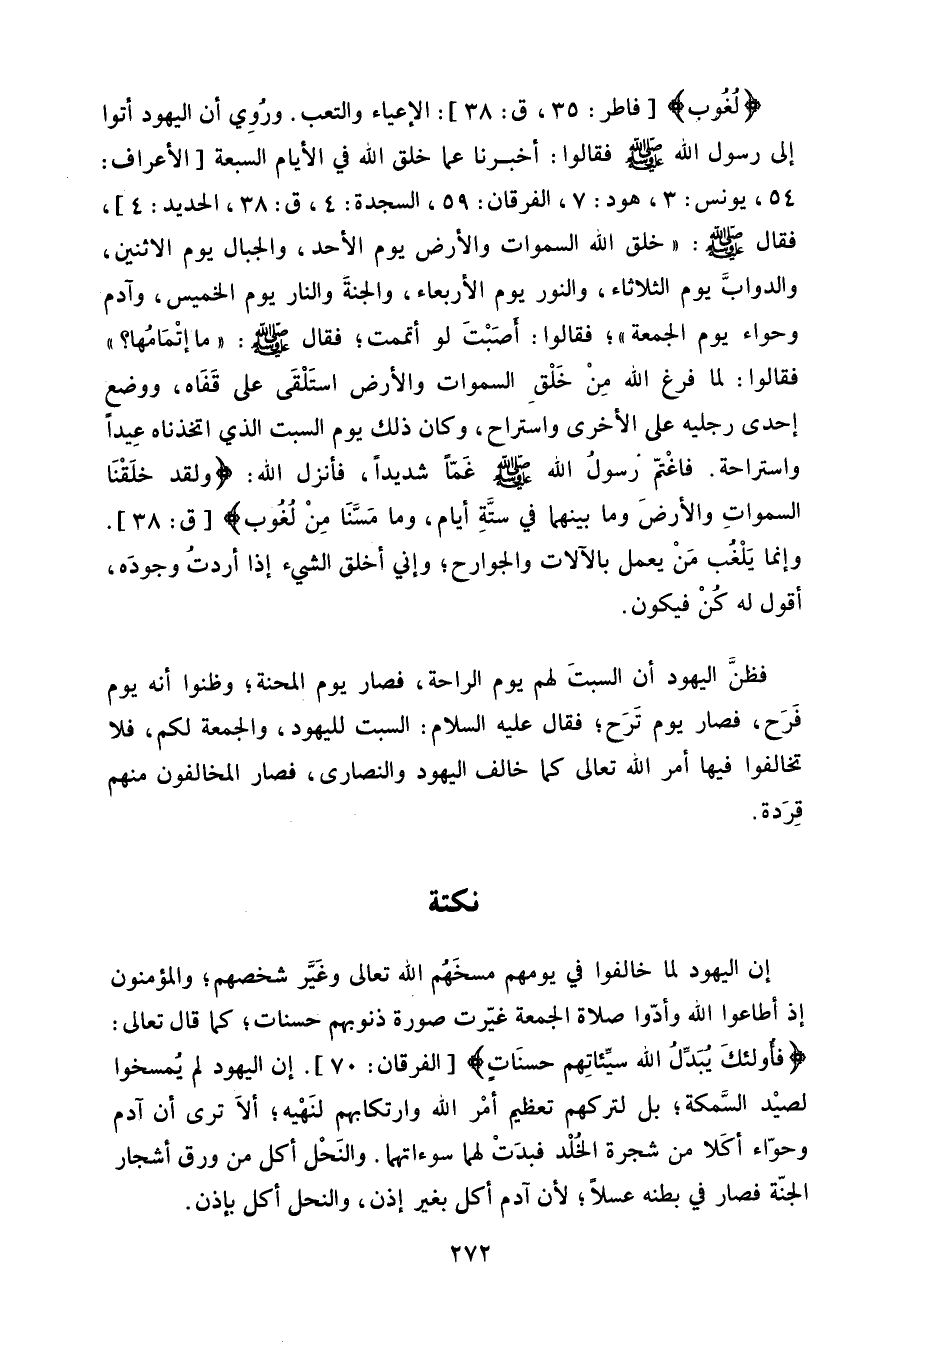 ﴿لُغُوب﴾ [ فاطر : ٣٥ ، ق : ٣٨ ] : الإعياء والتعب . ورُوِي أن اليهود أتوا
إلى رسول الله ﷺ فقالوا : أخبـرنا عما خلق الله في الأيام السبعة [ الأعراف :
٥٤ ، يونس : ٣ ، هود : ٧ ، الفرقان : ٥٩ ، السجدة : ٤ ، ق : ٣٨ ، الحديد : ٤ ] ،
فقال ﷺ : « خلق الله السموات والأرض يوم الأحد ، والجبال يوم الاثنين ،
والدوابَّ يوم الثلاثاء ، والنور يوم الأربعاء ، والجنةَ والنار يوم الخميس ، وآدم
وحواء يوم الجمعة » ؛ فقالوا : أَصَبْتَ لو أتممت ؛ فقال ﷺ : « ما إتْمَامُها ؟ »
فقالوا : لما فرغ الله مِنْ خَلْقِ السموات والأرض استَلْقَى على قَفَاه ، ووضع
إحدى رجليه على الأخرى واستراح ، وكان ذلك يوم السبت الذي اتخذناه عِيداً
واستراحة . فاغْتمّ رسولُ الله ﷺ غَمّاً شديداً ، فأنزل الله : ﴿ولقد خلَقْنَا
السمواتِ والأرضَ وما بينهما في ستَّةِ أيام ، وما مَسَّنَا مِنْ لُغُوب﴾ [ ق : ٣٨ ] .
وإنما يَلْغُب مَنْ يعمل بالآلات والجوارح ؛ وإني أخلق الشيء إذا أردتُ وجودَه ،
أقول له كُنْ فيكون .
فظنَّ اليهود أن السبتَ لهم يوم الراحة ، فصار يوم المحنة ؛ وظنوا أنه يوم
فَرَح ، فصار يوم تَرَح ؛ فقال عليه السلام : السبت لليهود ، والجمعة لكم ، فلا
تخالفوا فيها أمر الله تعالى كما خالف اليهود والنصارى ، فصار المخالفون منهم
قِرَدة .
نكتة
إن اليهود لما خالفوا في يومهم مسخَهُم الله تعالى وغَيَّر شخصهم ؛ والمؤمنون
إذ أطاعوا الله وأدّوا صلاة الجمعة غيّرت صورة ذنوبهم حسنات ؛ كما قال تعالى :
﴿فأولئكَ يُبَدِّلُ الله سيِّئاتِهم حسنَاتٍ﴾ [ الفرقان : ٧٠ ] . إن اليهود لم يُمسخوا
لصيْد السَّمكة ؛ بل لتركهم تعظيم أمْر الله وارتكابهم لنَهْيه ؛ ألاَ ترى أن آدم
وحوّاء أكَلا من شجرة الخُلْد فبدَتْ لهما سوءاتهما . والنَحْل أكل من ورق أشجار
الجنّة فصار في بطنه عسلاً ؛ لأن آدم أكل بغير إذن ، والنحل أكل بإذن .
٢٧٢